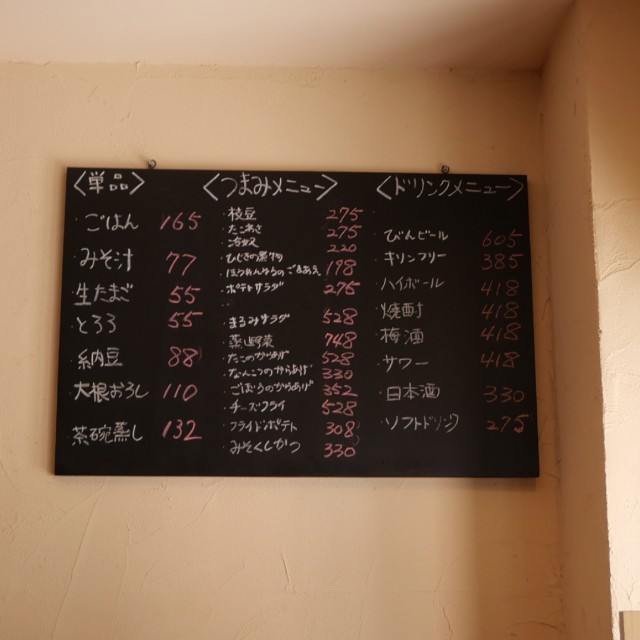 〈単品〉
・ごはん 165
・みそ汁 77
・生たまご 55
・とろろ 55
・納豆 88
・大根おろし 110
・茶碗蒸し 132
〈つまみメニュー〉
・枝豆 275
・たこわさ 275
・冷奴 220
・ひじきの煮物
・ほうれんそうのごまあえ 198
・ポテトサラダ 275
・まるみサラダ 528
・蒸し野菜 748
・たこのからあげ 528
・なんこつのからあげ 330
・ごぼうのからあげ 352
・チーズフライ 528
・フライドポテト 308
・みそくしかつ 330
〈ドリンクメニュー〉
・びんビール 605
・キリンフリー 385
・ハイボール 418
・焼酎 418
・梅酒 418
・サワー 418
・日本酒 330
・ソフトドリンク 275